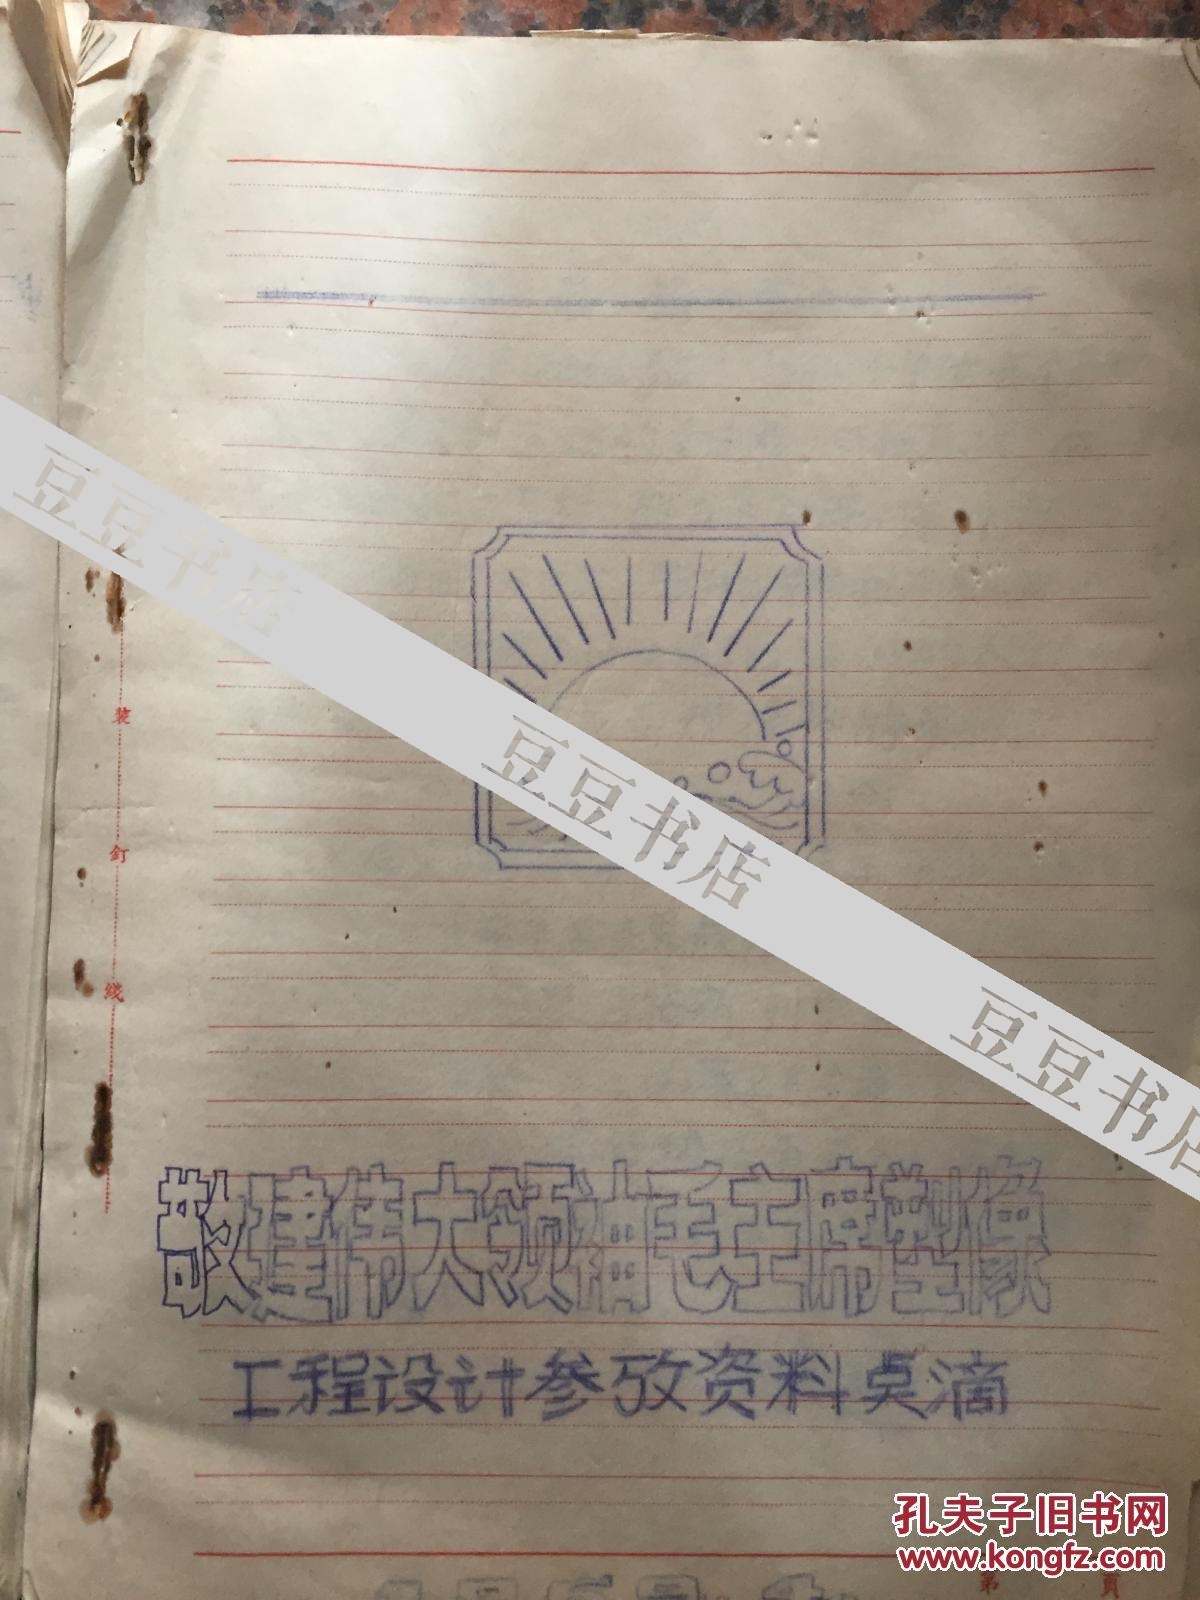 豆豆书店
豆豆书店
豆豆书店
装
釘
线
敬建伟大领袖毛主席塑像
工程设计参攷资料点滴
孔夫子旧书网
www.kongfz.com
第 頁